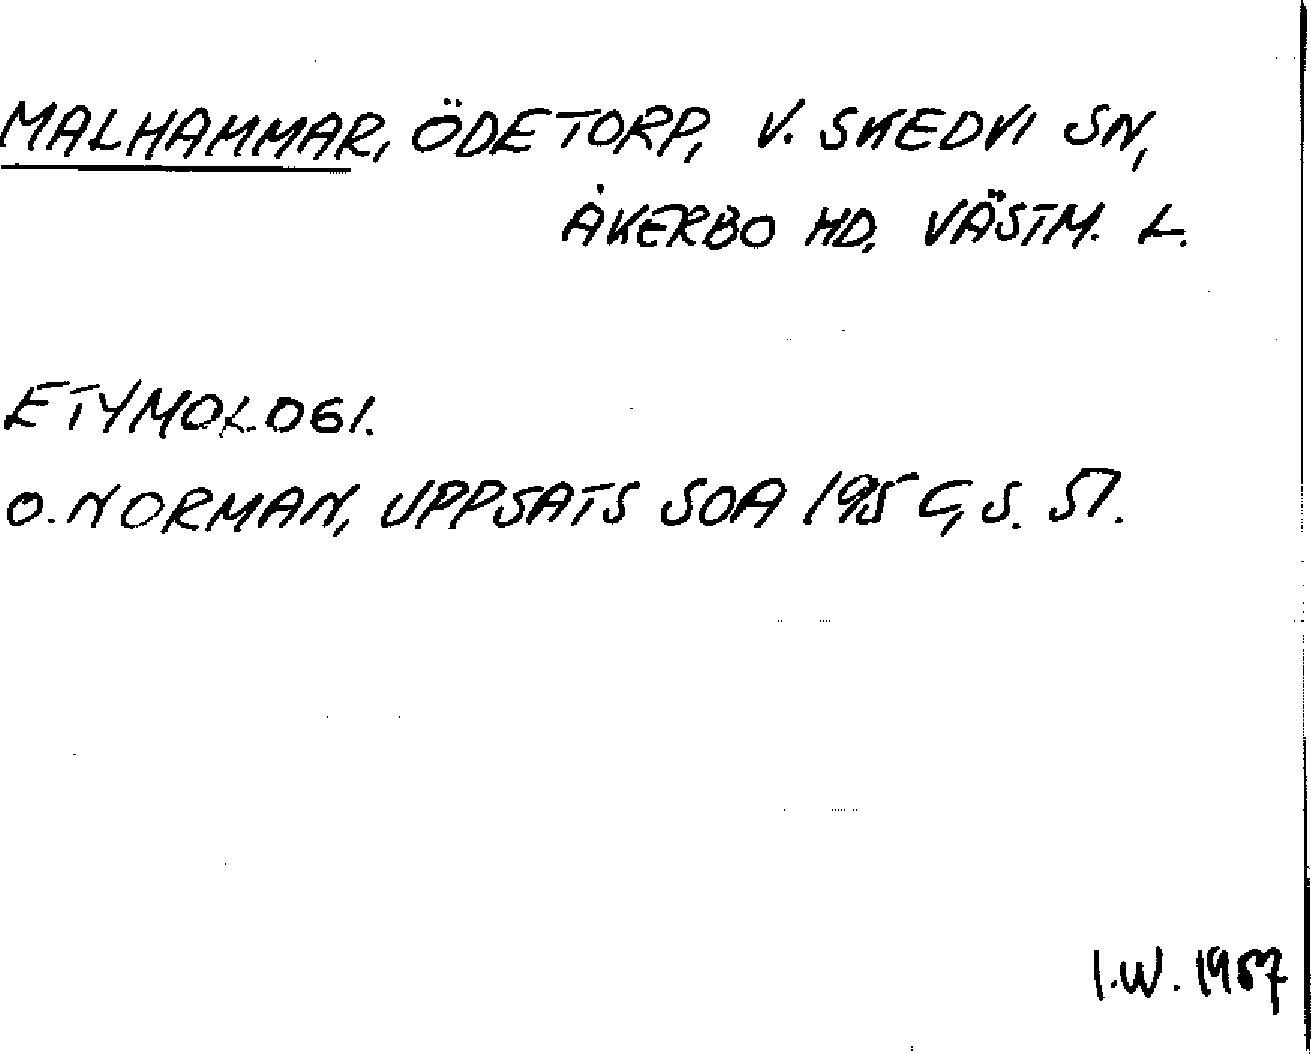 MALHAMMAR, ÖDETORP, V. SKEDVI SN,
ÅKERBO HD, VÄSTM. L.
ETYMOLOGI.
O. NORMAN, UPPSATS SOA S. 57.
I.W.